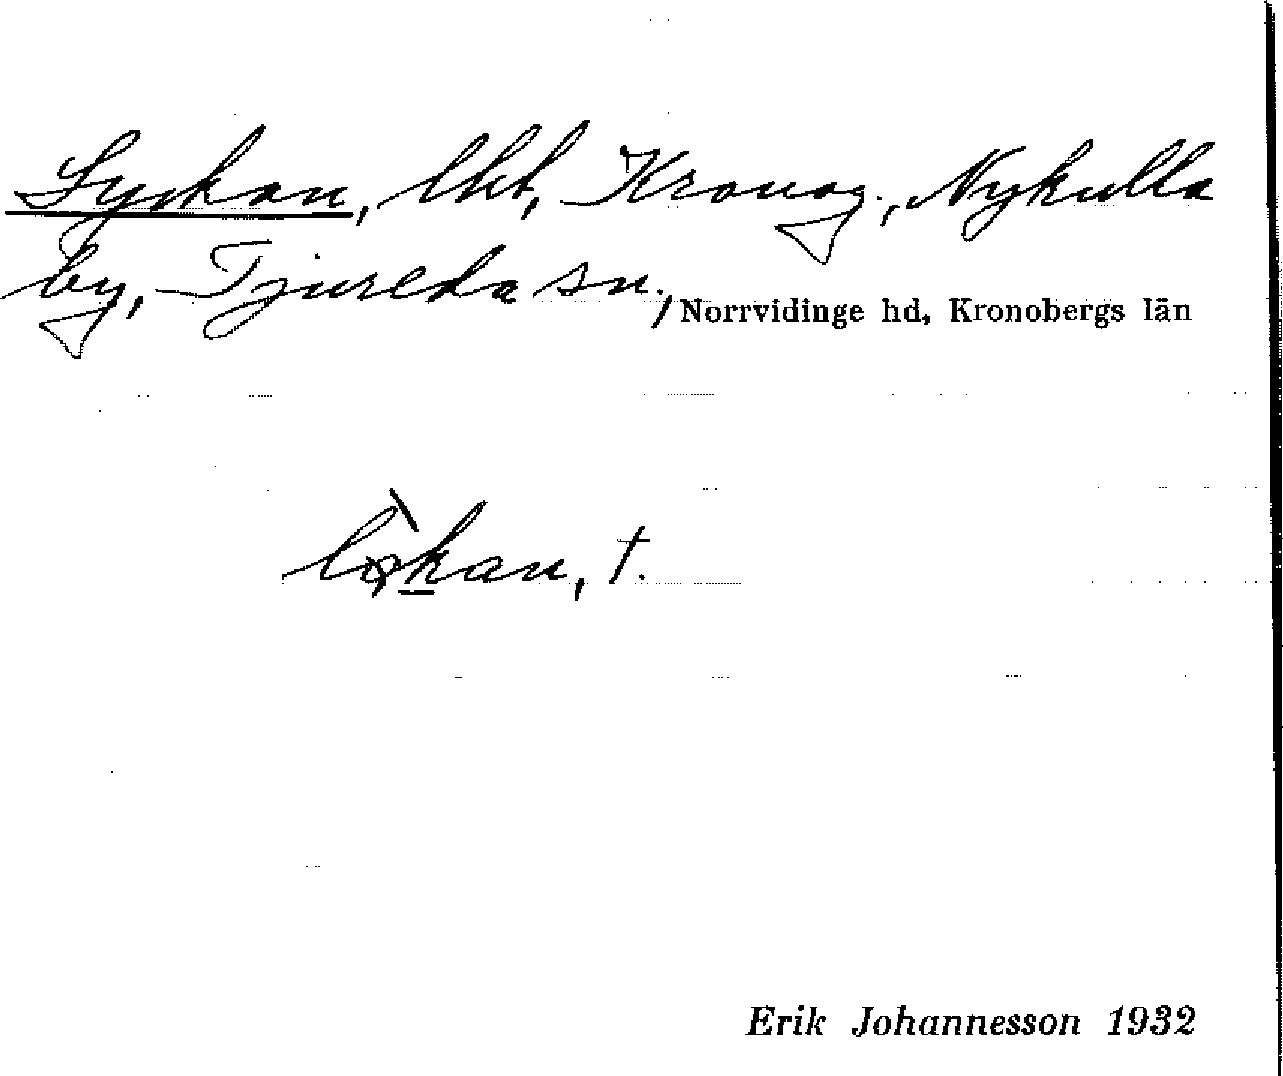 Lyckan, lht, Kronog., Nykulla
by, Tjureda sn.,
Norrvidinge hd, Kronobergs län
, t.
Erik Johannesson 1932